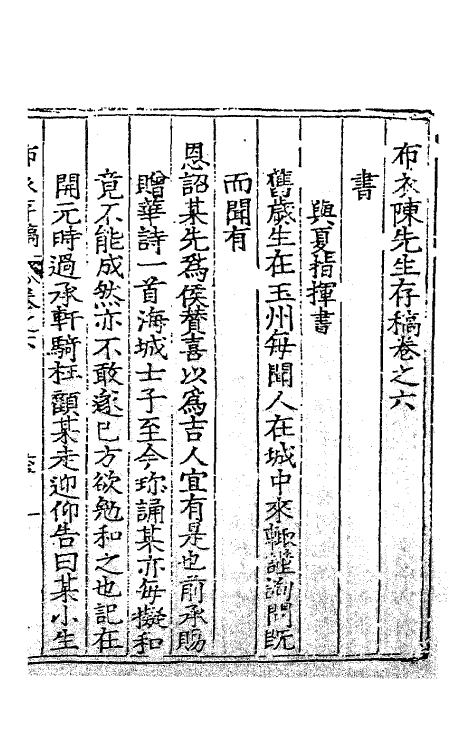 布衣陳先生存稿卷之六
書
與夏指揮書
舊歲生在玉州每聞人在城中來輙謹詢問既
而聞有
恩詔某先為侯賛喜以為吉人宜有是也前承賜
贈華詩一首海城士子至今珎誦某亦每擬和
竟不能成然亦不敢遂已方欲勉和之也記在
開元時過承軒騎枉顧某走迎仰告曰某小生
布衣存稿 卷之六 一